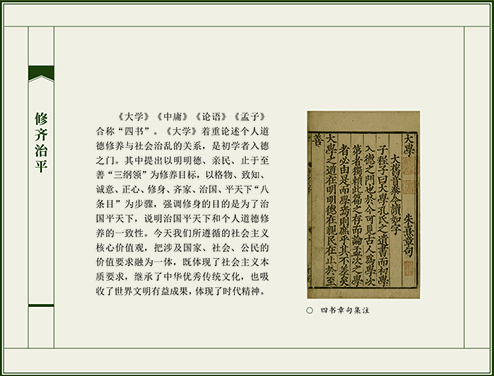 修齐治平
《大学》《中庸》《论语》《孟子》
合称“四书”。《大学》着重论述个人道
德修养与社会治乱的关系，是初学者入德
之门。其中提出以明明德、亲民、止于至
善“三纲领”为修养目标，以格物、致知、
诚意、正心、修身、齐家、治国、平天下“八
条目”为步骤，强调修身的目的是为了治
国平天下，说明治国平天下和个人道德修
养的一致性。今天我们所遵循的社会主义
核心价值观，把涉及国家、社会、公民的
价值要求融为一体，既体现了社会主义本
质要求，继承了中华优秀传统文化，也吸
收了世界文明有益成果，体现了时代精神。
大學
大舊音泰今讀如字
朱熹章句
子程子曰大學孔氏之遺書而初學
入德之門也於今可見古人爲學次
第者獨賴此篇之存而論孟次之學
者必由是而學焉則庶乎其不差矣
大學之道在明明德在親民在止於至
善
○ 四书章句集注